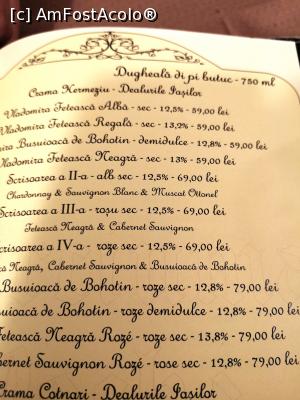 [c] AmFostAcolo®
Dugheală di pi butuc - 750 ml
Crama Hermeziu - Dealurile Iașilor
Vladomira Fetească Albă - sec - 12,5% - 59,00 lei
Vladomira Fetească Regală - sec - 13,2% - 59,00 lei
Busuioacă de Bohotin - demidulce - 12,8% - 59,00 lei
Vladomira Fetească Neagră - sec - 13% - 59,00 lei
Scrisoarea a II-a - alb sec - 12,5% - 69,00 lei
Chardonnay & Sauvignon Blanc & Muscat Ottonel
Scrisoarea a III-a - roșu sec - 12,5% - 69,00 lei
Fetească Neagră & Cabernet Sauvignon
Scrisoarea a IV-a - roze sec - 12,5% - 69,00 lei
Neagră, Cabernet Sauvignon & Busuioacă de Bohotin
Busuioacă de Bohotin - roze sec - 12,8% - 79,00 lei
de Bohotin - roze demidulce - 12,8% - 79,00 lei
Fetească Neagră Rozé - roze sec - 13,8% - 79,00 lei
Sauvignon Rozé - rose sec - 12,8% - 79,00 lei
Crama Cotnari - Dealurile Iașilor